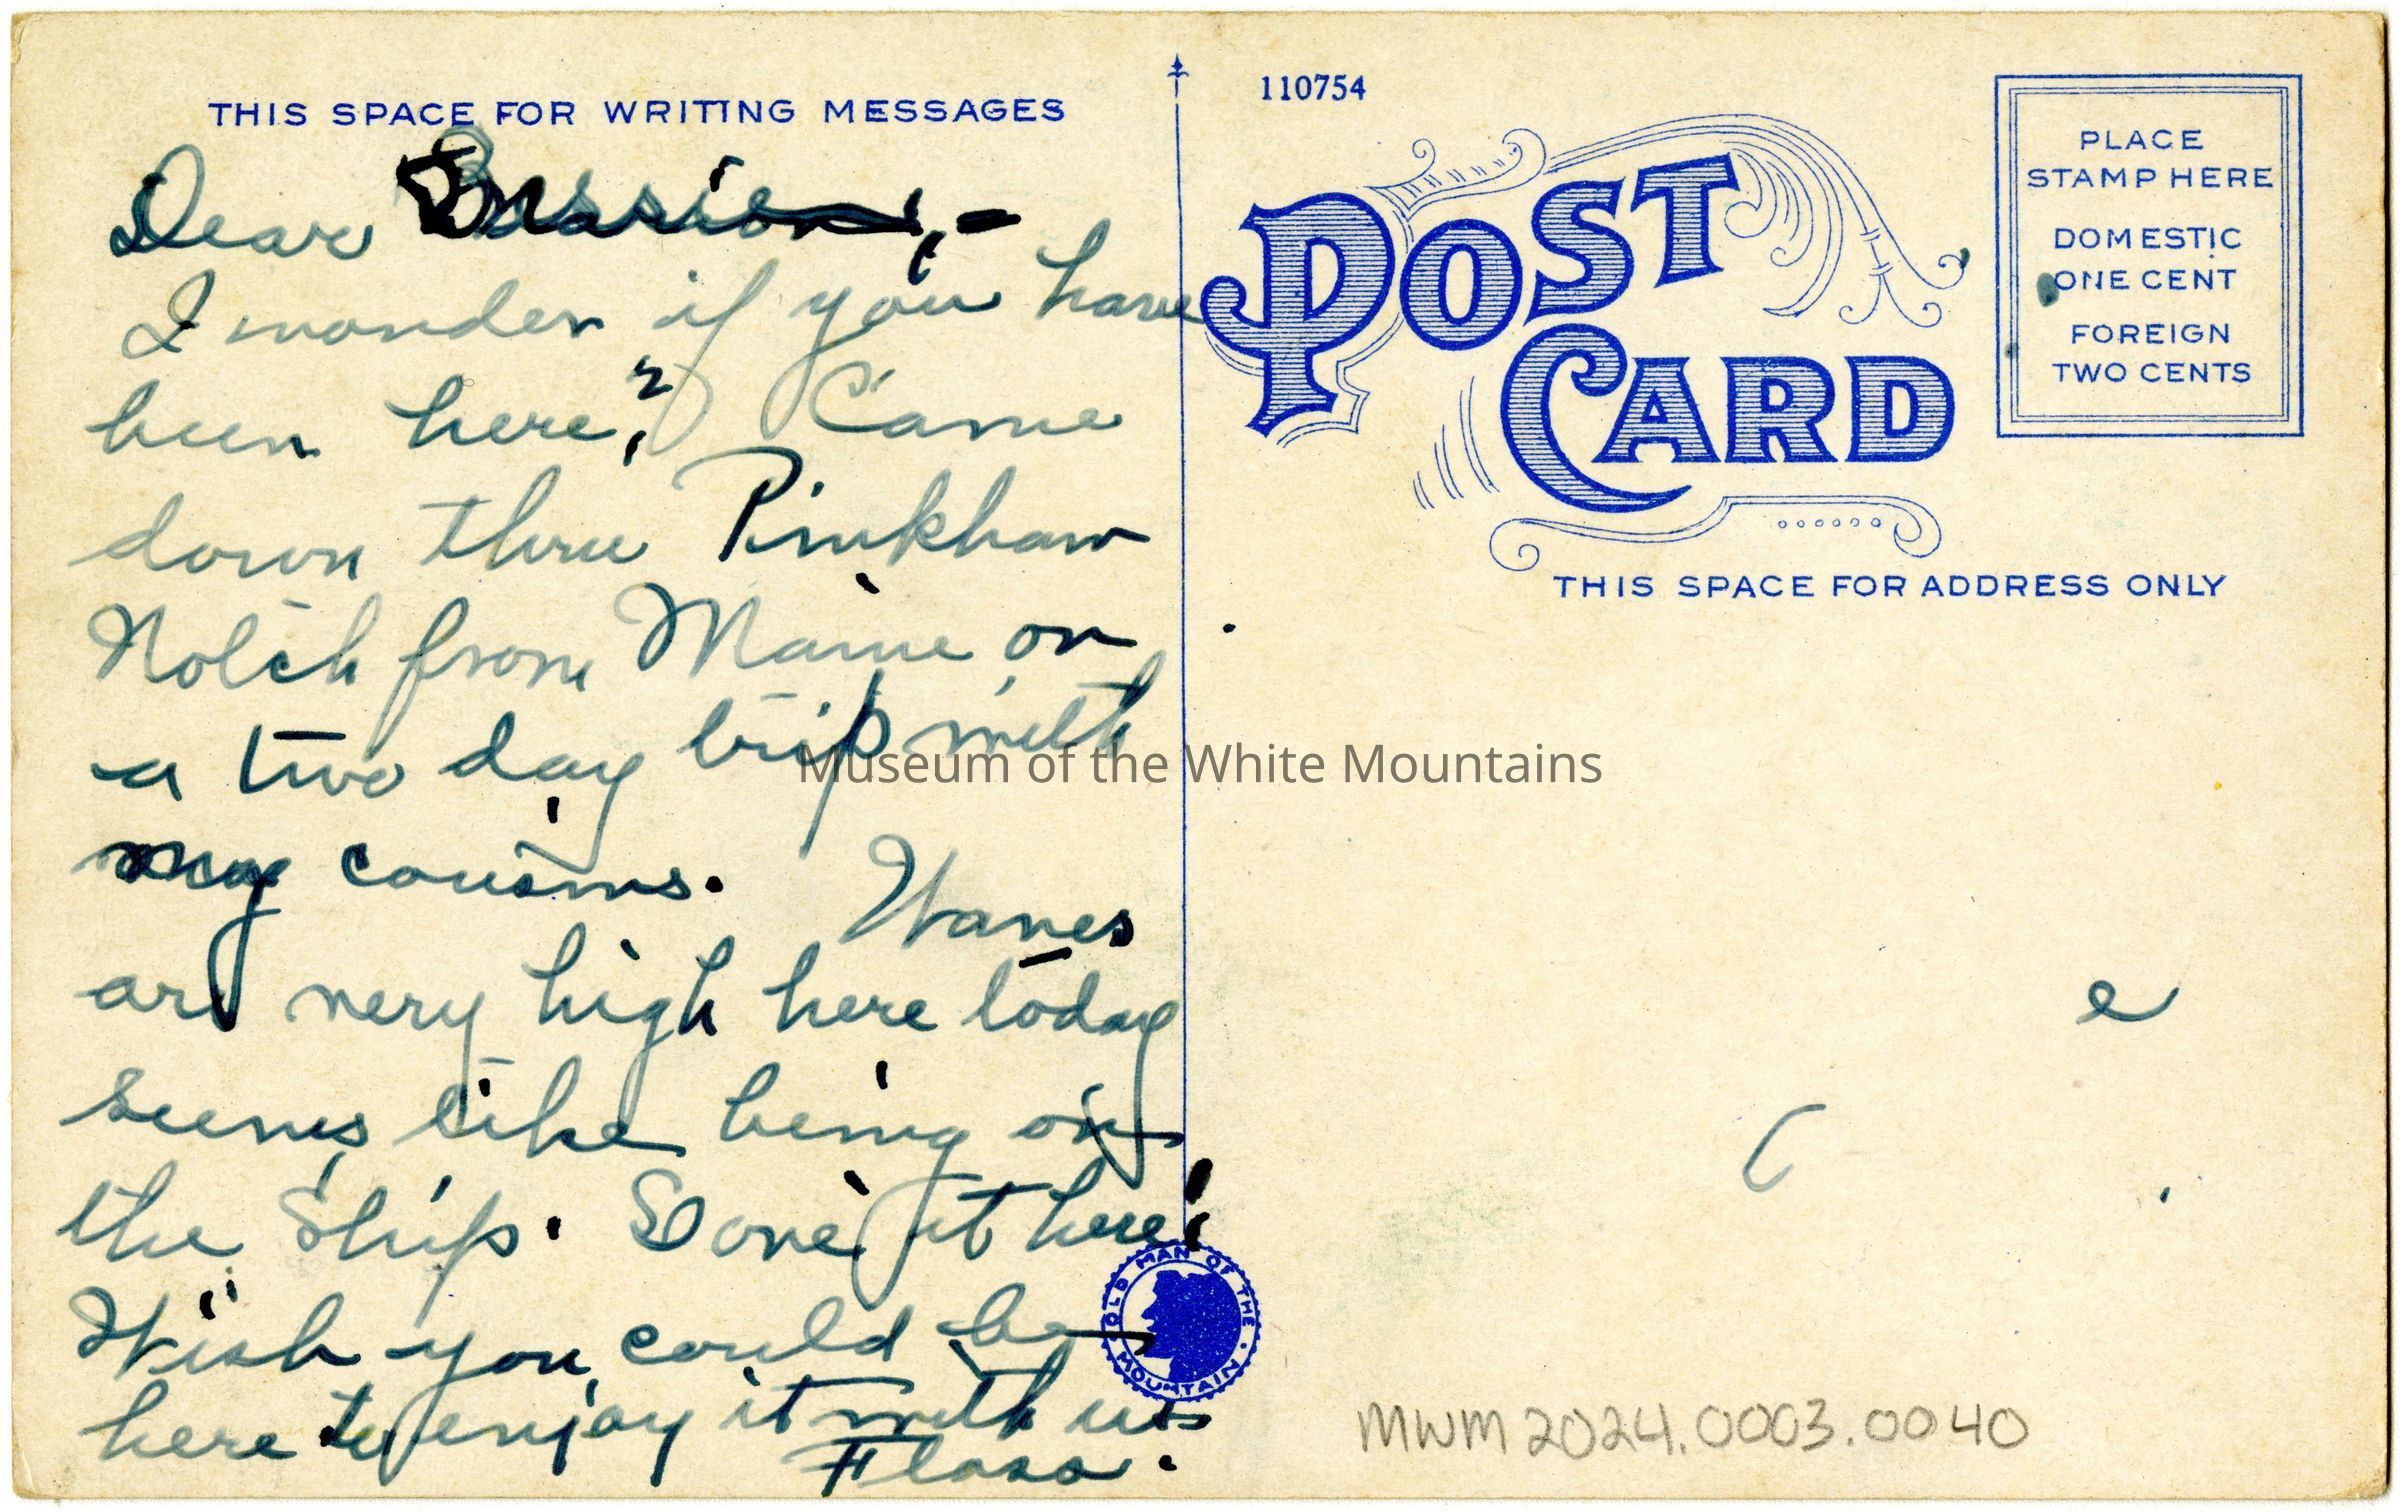 THIS SPACE FOR WRITING MESSAGES
Dear
I wonder if you have
been here? Came
down thru Pinkham
Notch from Maine on
a two day trip with
my cousins. Waves
are very high here today
seems like being on
the Ship. Love it here!
Wish you could be
here to enjoy it with us
Floss.
110754
POST
CARD
PLACE
STAMP HERE
DOMESTIC
ONE CENT
FOREIGN
TWO CENTS
THIS SPACE FOR ADDRESS ONLY
Museum of the White Mountains
OLD MAN OF THE MOUNTAIN
e
MWM 2024.0003.0040